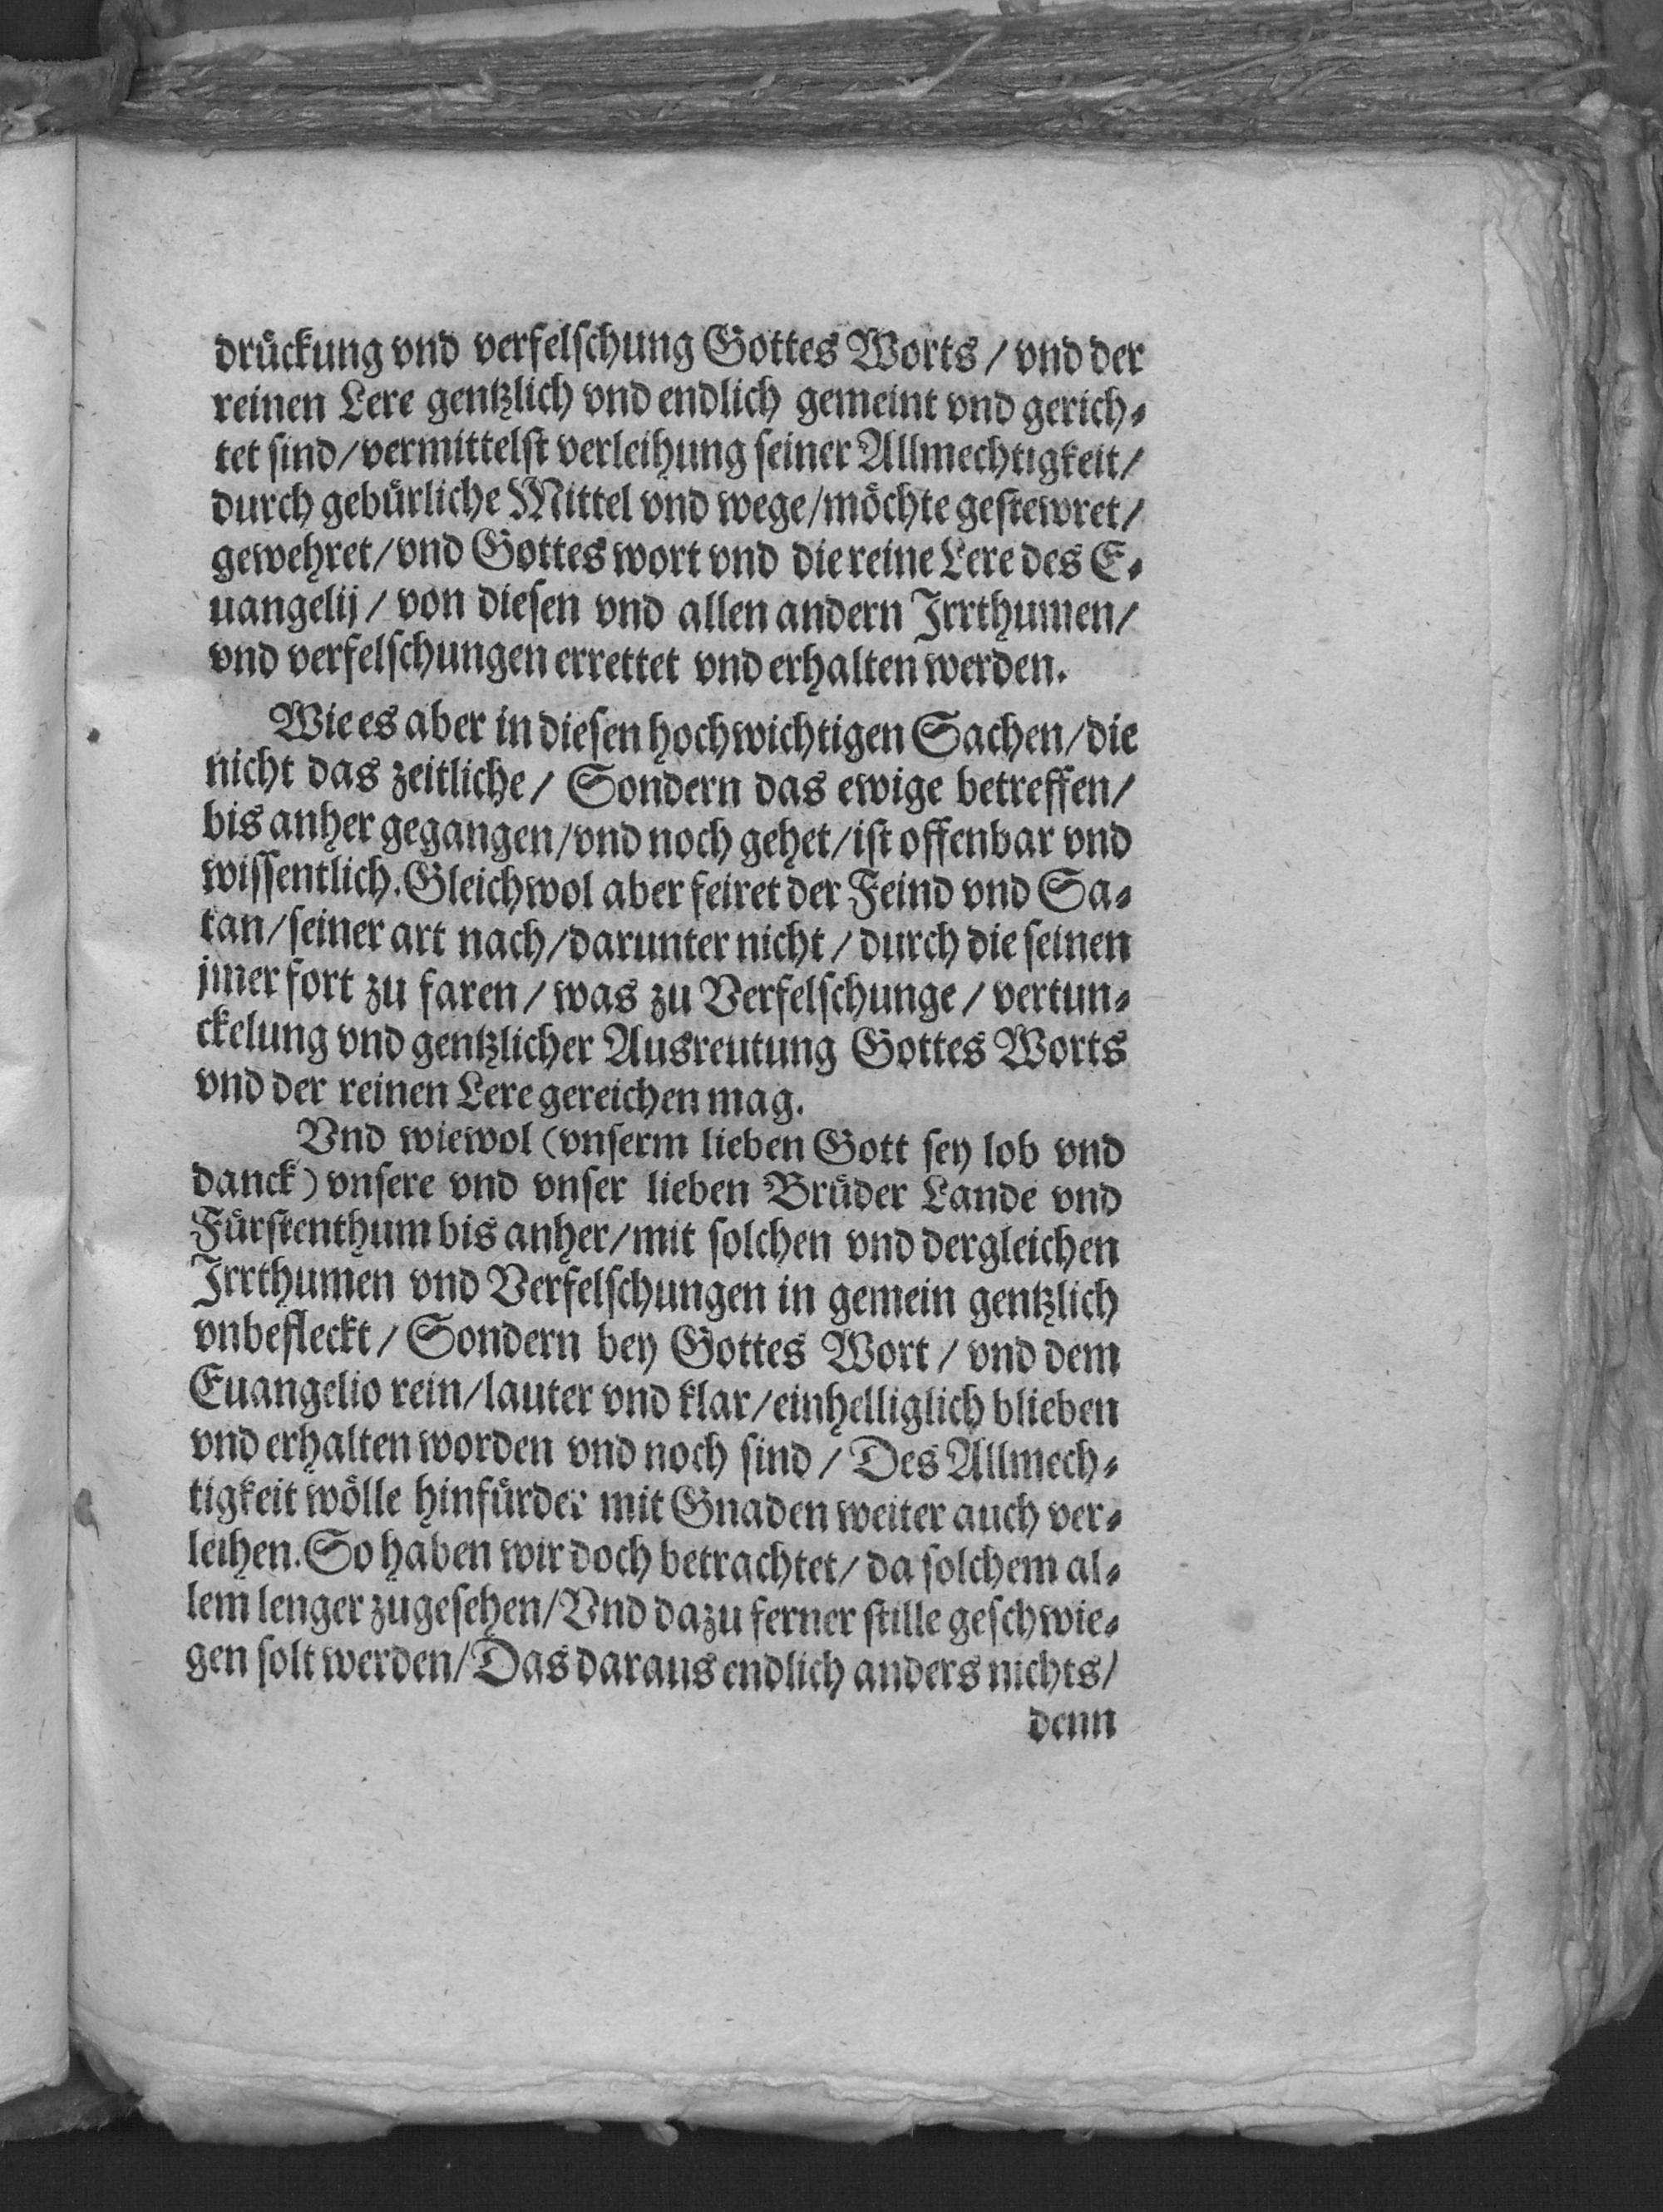 drückung vnd verfelschung Gottes Worts / vnd der
reinen Lere gentzlich vnd endlich gemeint vnd gerich⸗
tet sind / vermittelst verleihung seiner Allmechtigkeit /
durch gebürliche Mittel vnd wege / möchte gestewret /
gewehret / vnd Gottes wort vnd die reine Lere des E⸗
uangelij / von diesen vnd allen andern Irrthumen /
vnd verfelschungen errettet vnd erhalten werden.
Wie es aber in diesen hochwichtigen Sachen / die
nicht das zeitliche / Sondern das ewige betreffen /
bis anher gegangen / vnd noch gehet / ist offenbar vnd
wissentlich. Gleichwol aber feiret der Feind vnd Sa⸗
tan / seiner art nach / darunter nicht / durch die seinen
jmer fort zu faren / was zu Verfelschunge / vertun⸗
ckelung vnd gentzlicher Ausreutung Gottes Worts
vnd der reinen Lere gereichen mag.
Vnd wiewol (vnserm lieben Gott sey lob vnd
danck) vnsere vnd vnser lieben Brüder Lande vnd
Fürstenthum bis anher / mit solchen vnd dergleichen
Irrthumen vnd Verfelschungen in gemein gentzlich
vnbefleckt / Sondern bey Gottes Wort / vnd dem
Euangelio rein / lauter vnd klar / einhelliglich blieben
vnd erhalten worden vnd noch sind / Des Allmech⸗
tigkeit wölle hinfürder mit Gnaden weiter auch ver⸗
leihen. So haben wir doch betrachtet / da solchem al⸗
lem lenger zugesehen / Vnd dazu ferner stille geschwie⸗
gen solt werden / Das daraus endlich anders nichts /
denn